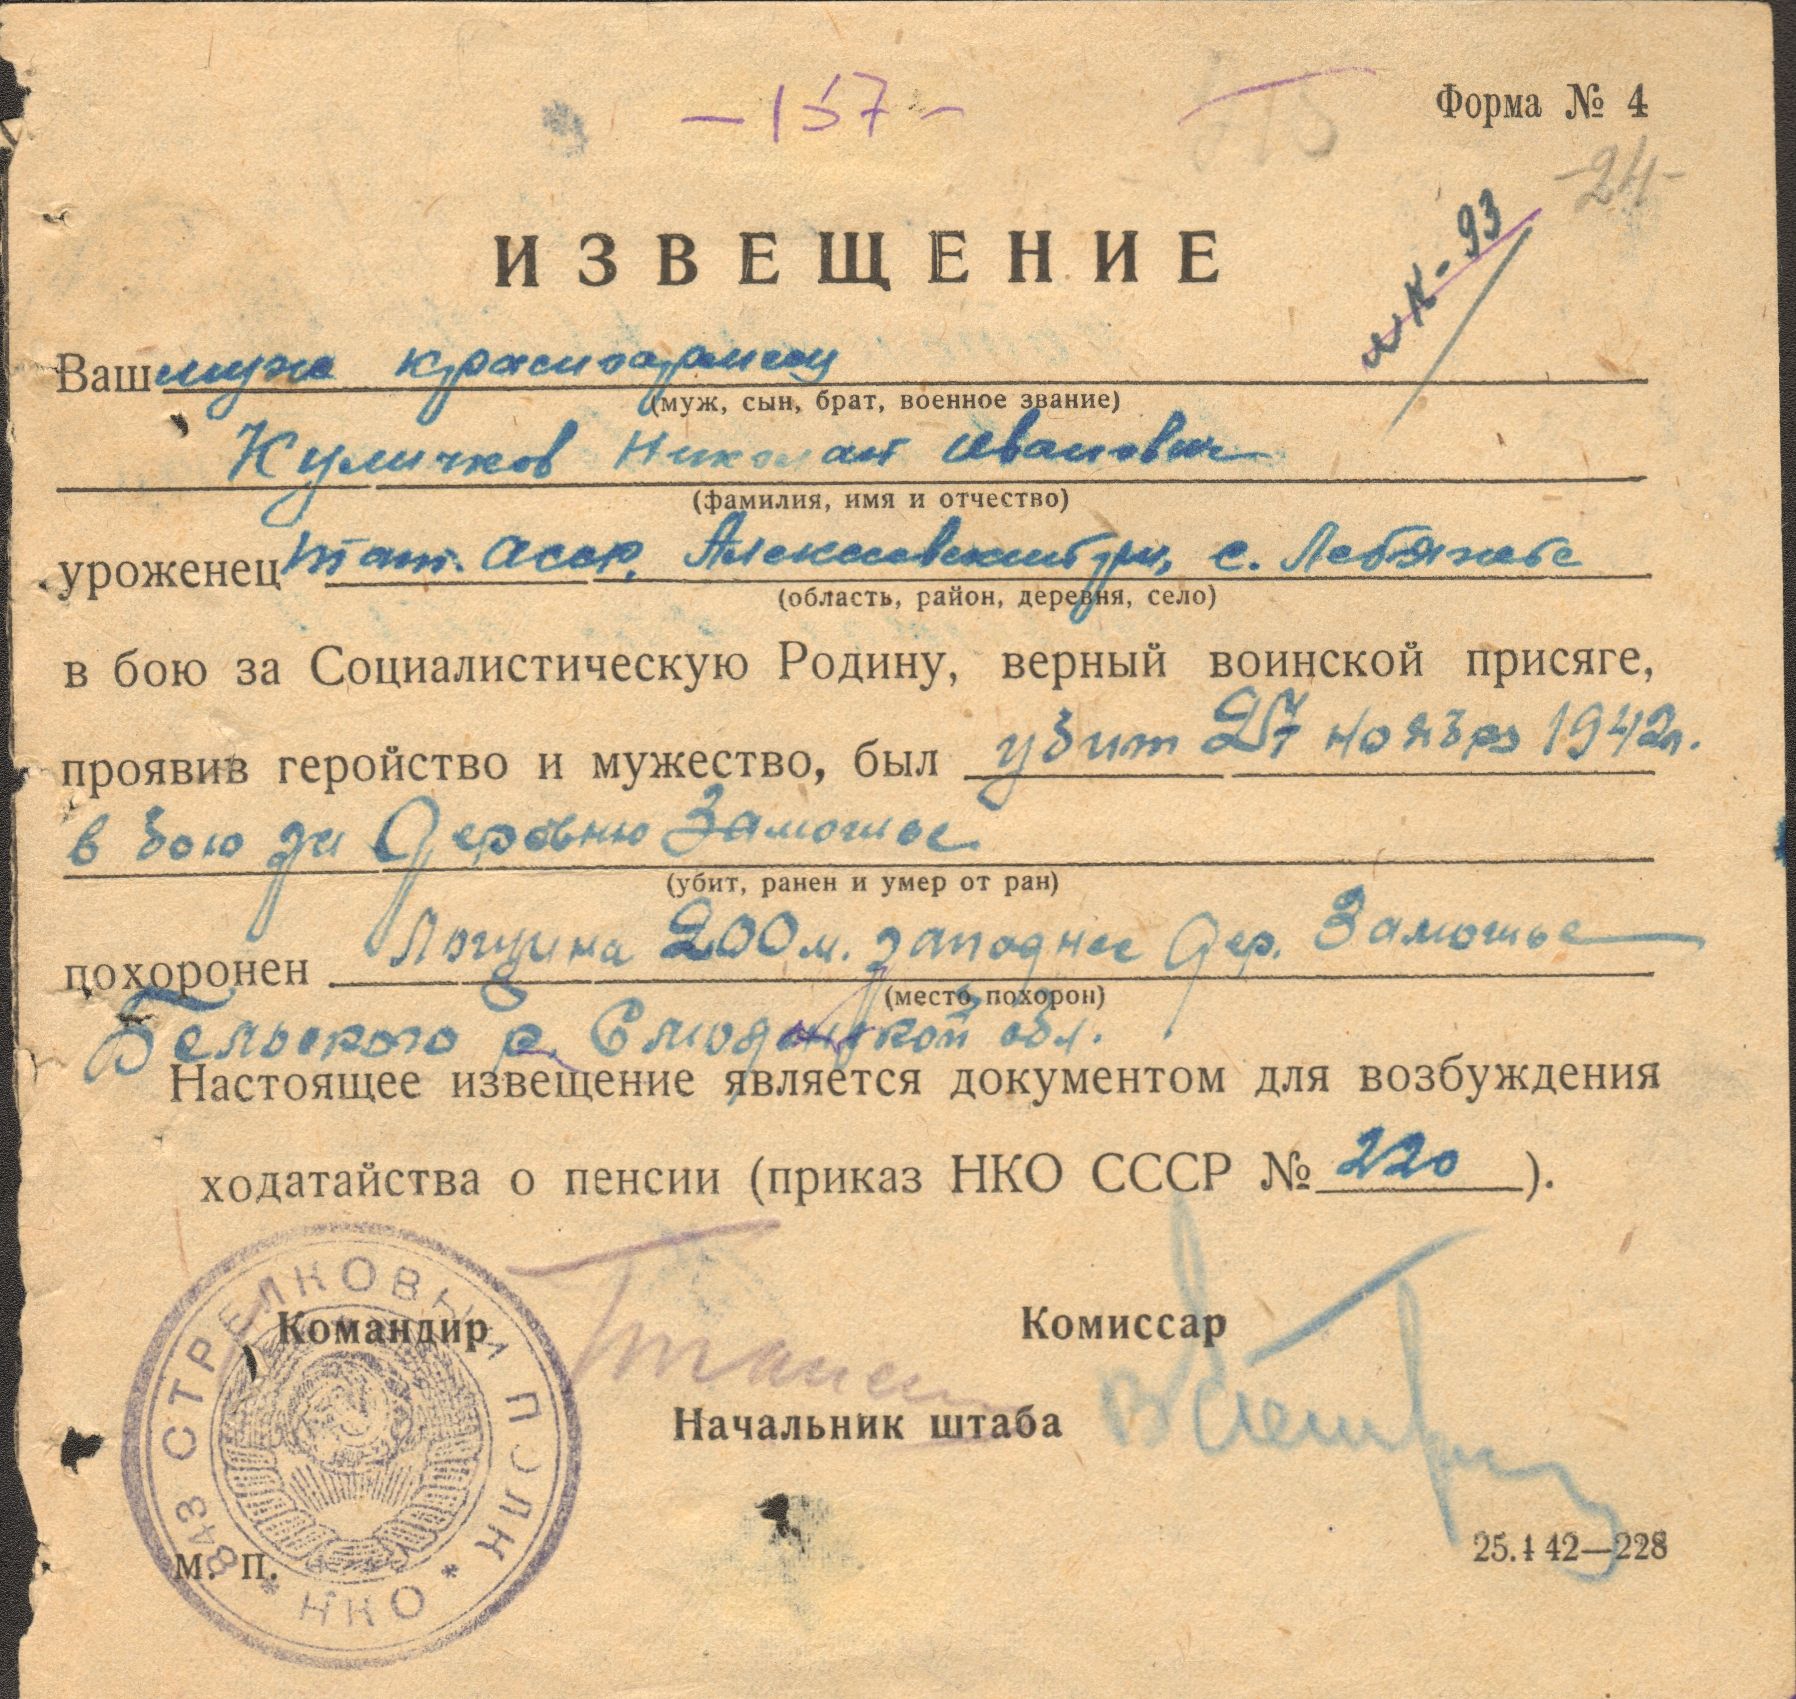 -157-
Форма № 4
-24-
ик-93
ИЗВЕЩЕНИЕ
Ваш муж красноармеец
(муж, сын, брат, военное звание)
Куличков Николай Иванович
(фамилия, имя и отчество)
уроженец Тат. Асср, Алексеевский р-н, с. Лебяжье
(область, район, деревня, село)
в бою за Социалистическую Родину, верный воинской присяге,
проявив геройство и мужество, был убит 27 ноября 1942г.
в бою за деревню Замошье
(убит, ранен и умер от ран)
похоронен Лощина 200 м. западнее дер. Замошье
(место похорон)
Бельского р. Смоленской обл.
Настоящее извещение является документом для возбуждения
ходатайства о пенсии (приказ НКО СССР № 220 ).
Командир
Комиссар
Начальник штаба
843 СТРЕЛКОВЫЙ ПОЛК * НКО *
М. П.
25.1 42—228